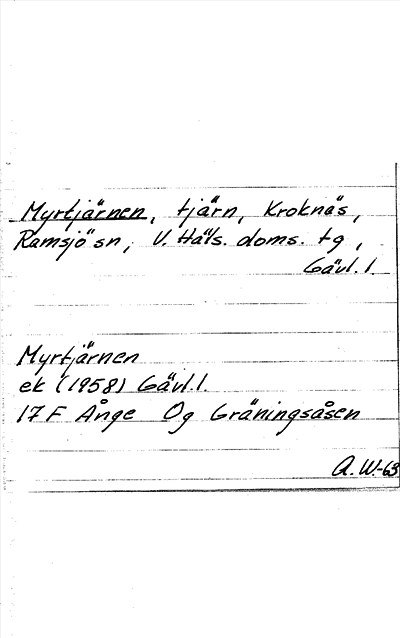 Myrtjärnen, tjärn, Kroknäs,
Ramsjö sn, V. Häls. doms. tg,
Gävl. l.
Myrtjärnen
ek (1958) Gävl. l.
17 F Ånge Og Gräningsåsen
A. W.-63